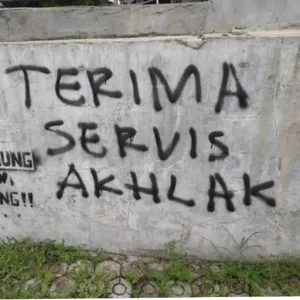 TERIMA
SERVIS
AKHLAK
UNG
NG!!